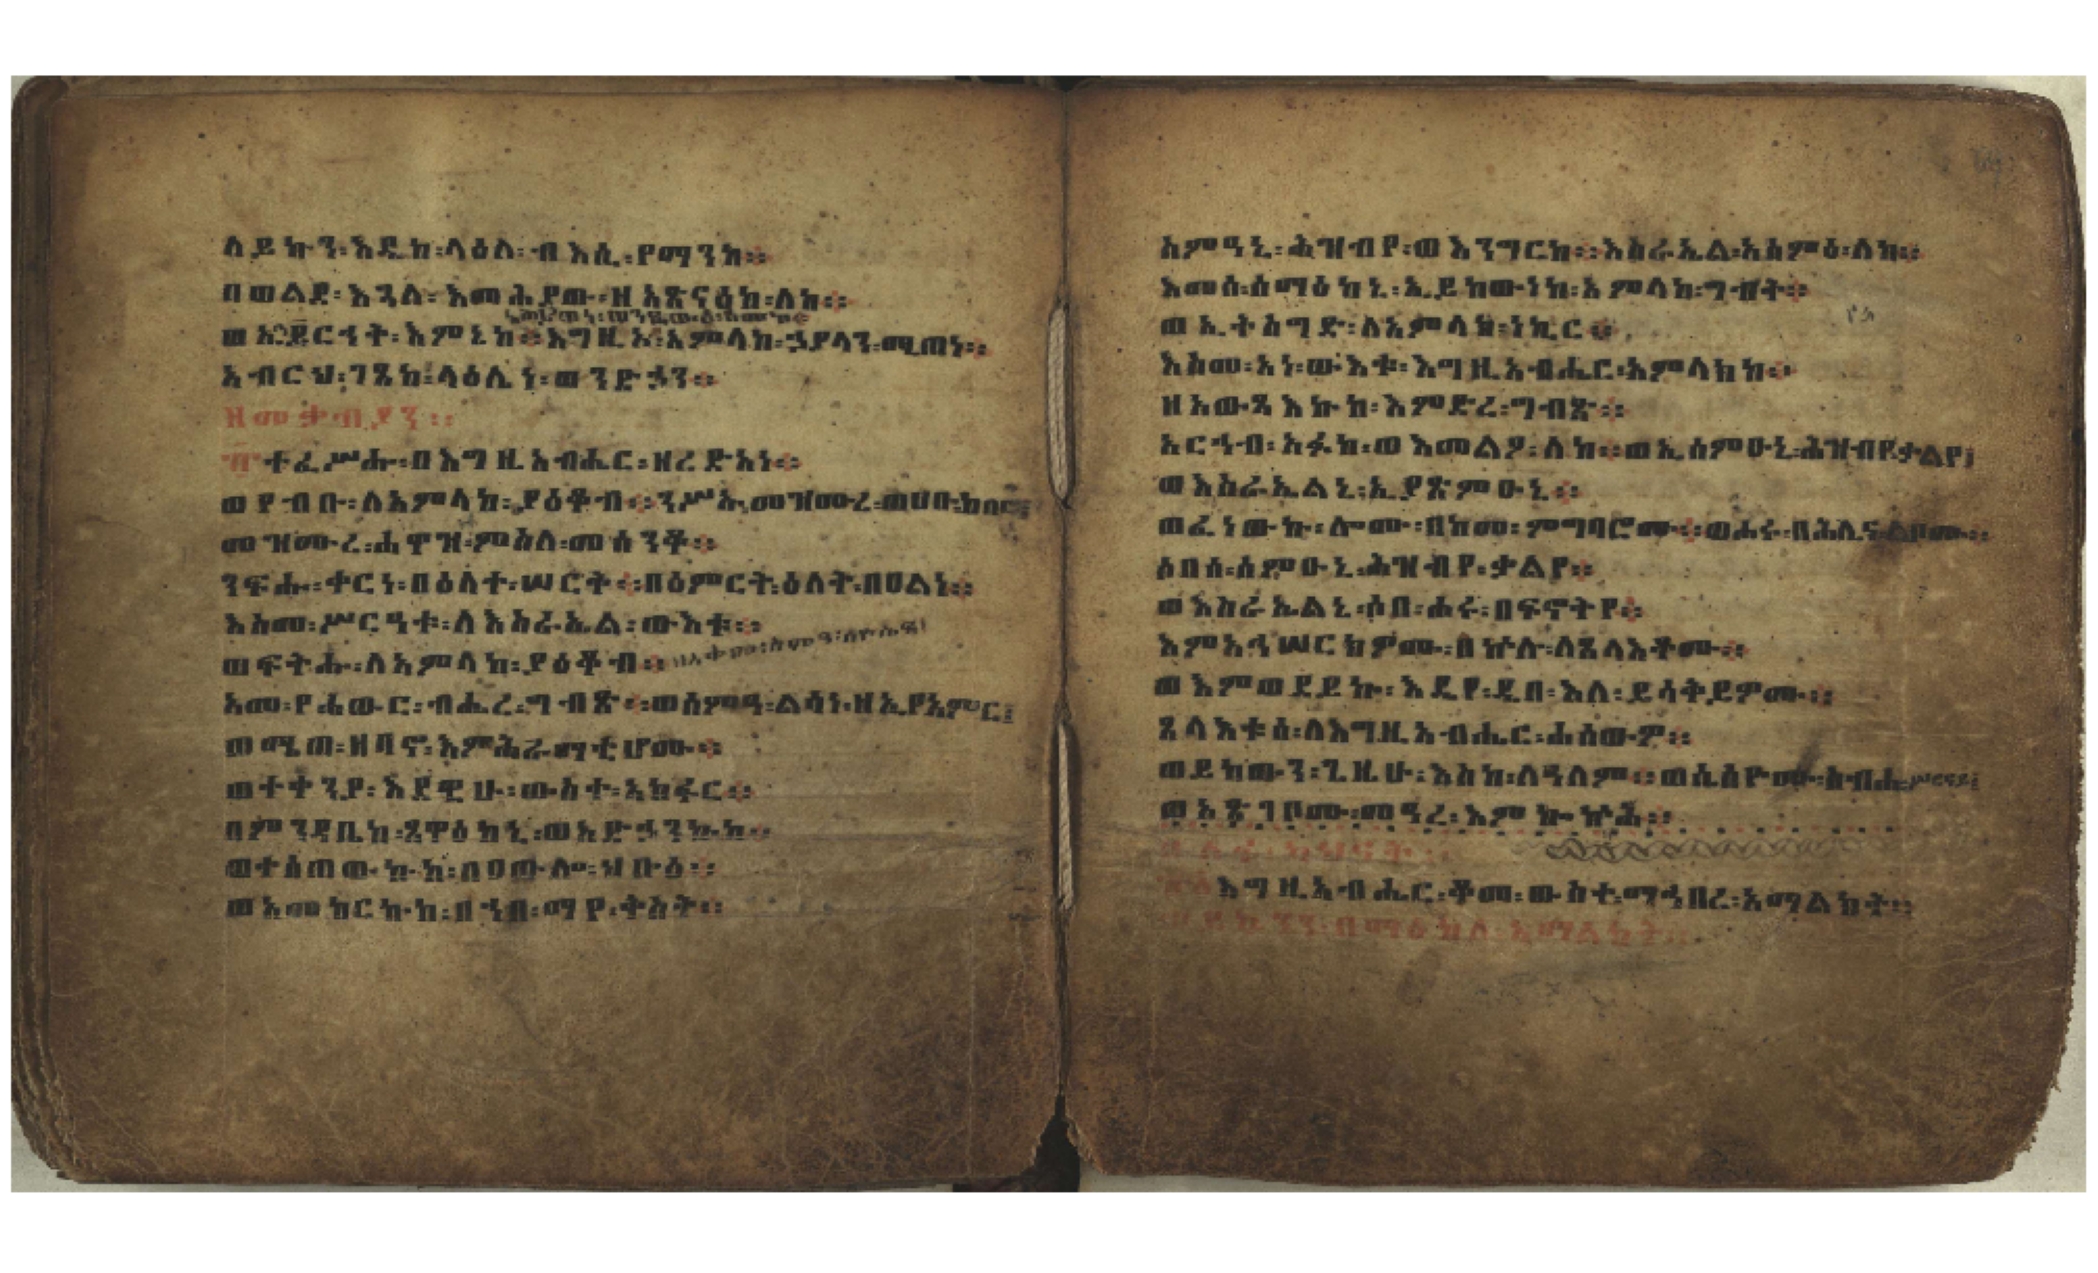 ለይኩን፡እዴከ፡ላዕለ፡ብእሲ፡የማንከ።
በወልደ፡እጓለ፡እመሕያው፡ዘአጽናዕከ፡ለከ።
ወኢይርኅቀ፡እምኔከ።እግዚኦ፡አምላከ፡ኃያላን፡ሚጠነ።
አብርህ፡ገጸከ፡ላዕሌነ፡ወንድኃን።
ዘመቃብያን።
፹ ተፈሥሑ፡በእግዚአብሔር፡ዘረድአነ።
ወየብቡ፡ለአምላከ፡ያዕቆብ።ንሥኡ፡መዝሙረ፡ወሀቡ፡ከበሮ፤
መዝሙረ፡ሐዋዝ፡ምስለ፡መሰንቆ።
ንፍሑ፡ቀርነ፡በዕለተ፡ሠርት።በዕምርት፡ዕለት፡በዐልነ።
እስመ፡ሥርዓቱ፡ለእስራኤል፡ውእቱ።
ወፍትሑ፡ለአምላከ፡ያዕቆብ።
አመ፡የሐውር፡ብሔረ፡ግብጽ።ወሰምዓ፡ልሳነ፡ዘኢየአምር፤
ወሜጠ፡ዘባኖ፡እምሕራማቲሆሙ።
ወተቀንያ፡እደዊሁ፡ውስተ፡አክፋር።
በምንዳቤከ፡ጸዋዕከኒ፡ወአድኃንኩከ።
ወተሰጠውኩከ፡በዐውሎ፡ኅቡዕ።
ወአመከርኩከ፡በኀበ፡ማየ፡ቅስት።
አምዓኒ፡ሕዝብየ፡ወእንግርከ።እስራኤል፡አስምዕ፡ለከ።
እመሰ፡ሰማዕከኒ፡ኢይከውነከ፡አምላከ፡ግብት።
ወኢትስግድ፡ለአምላክ፡ነኪር።
እስመ፡አነ፡ውእቱ፡እግዚአብሔር፡አምላክከ።
ዘአውጻእኩከ፡እምድረ፡ግብጽ።
አርኅብ፡አፉከ፡ወእመልኦ፡ለከ።ወኢሰምዑኒ፡ሕዝብየ፡ቃልየ፤
ወእስራኤልኒ፡ኢያጽምዑኒ።
ወፈነውኩ፡ሎሙ፡በከመ፡ምግባሮሙ።ወሐሩ፡በሕሊና፡ልቦሙ።
ሶበሰ፡ሰምዑኒ፡ሕዝብየ፡ቃልየ።
ወእስራኤልኒ፡ሶበ፡ሐሩ፡በፍኖትየ።
እምአኅሠርክዎሙ፡በኵሉ፡ለጸላእቶሙ።
ወእምወደይኩ፡እዴየ፡ዲበ፡እለ፡ይሣቅይዎሙ።
ጸላእቱሰ፡ለእግዚአብሔር፡ሐሰውዎ።
ወይከውን፡ጊዜሁ፡እስከ፡ለዓለም።ወሴሰዮሙ፡ስብሐ፡ሥርናይ፤
ወአጽገቦሙ፡መዓረ፡እምኰኵሕ።
እግዚአብሔር፡ቆመ፡ውስተ፡ማኅበረ፡አማልክት።
ወይኴንን፡በማዕከለ፡አማልክት።